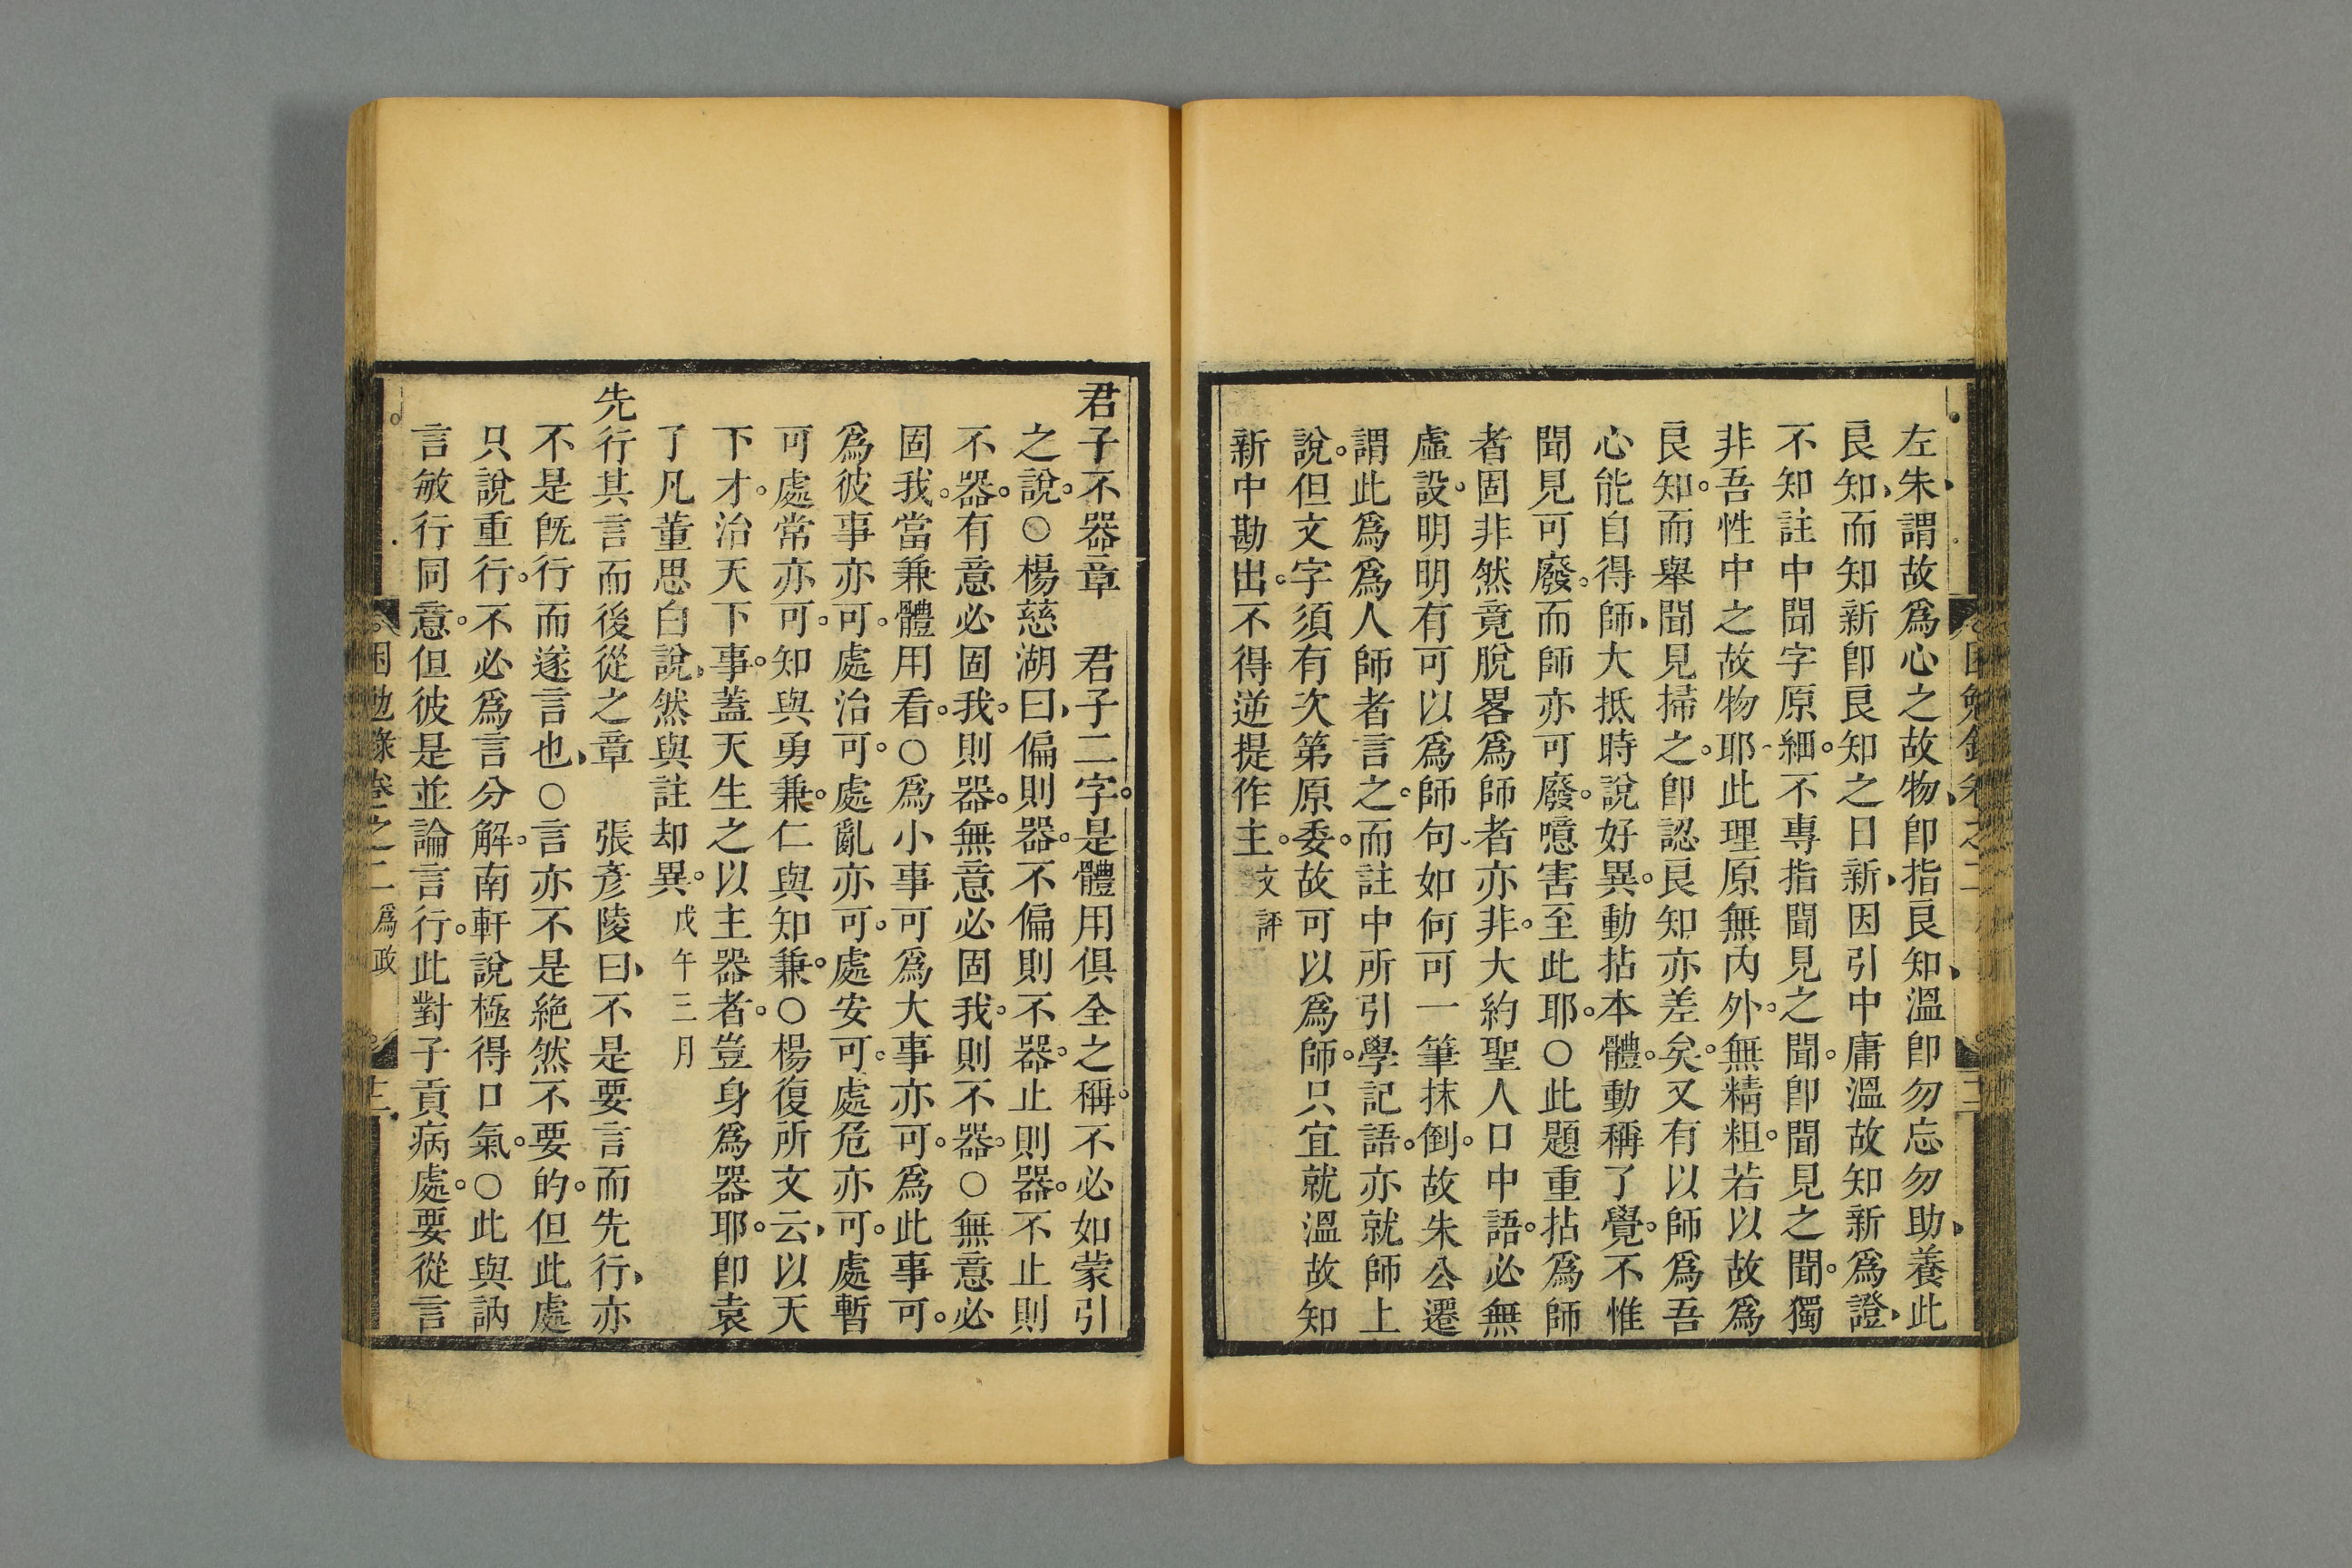 左朱謂故爲心之故物卽指良知溫卽勿忘勿助養此
良知而知新卽良知之日新因引中庸溫故知新爲證
不知註中聞字原細不專指聞見之聞卽聞見之聞獨
非吾性中之故物耶此理原無內外無精粗若以故爲
良知而舉聞見掃之卽認良知亦差矣又有以師爲吾
心能自得師大抵時說好異動拈本體動稱了覺不惟
聞見可廢而師亦可廢噫害至此耶○此題重拈爲師
者固非然竟脫畧爲師者亦非大約聖人口中語必無
虛設明明有可以爲師句如何可一筆抹倒故朱公遷
謂此爲爲人師者言之而註中所引學記語亦就師上
說但文字須有次第原委故可以爲師只宜就溫故知
新中勘出不得逆提作主文評
君子不器章　君子二字是體用俱全之稱不必如蒙引
之說○楊慈湖曰偏則器不偏則不器止則器不止則
不器有意必固我則器無意必固我則不器○無意必
固我當兼體用看○爲小事可爲大事亦可爲此事可
爲彼事亦可處治可處亂亦可處安可處危亦可處暫
可處常亦可知與勇兼仁與知兼○楊復所文云以天
下才治天下事蓋天生之以主器者豈身爲器耶卽袁
了凡董思白說然與註却異戊午三月
先行其言而後從之章　張彥陵曰不是要言而先行亦
不是旣行而遂言也○言亦不是絶然不要的但此處
只說重行不必爲言分解南軒說極得口氣○此與訥
言敏行同意但彼是並論言行此對子貢病處要從言
困勉錄卷之二爲政